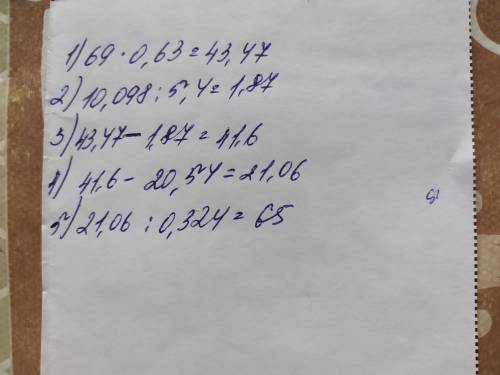 1) 69 · 0,63 = 43,47
2) 10,098 : 5,4 = 1,87
3) 43,47 - 1,87 = 41,6
4) 41,6 - 20,54 = 21,06
5) 21,06 : 0,324 = 65